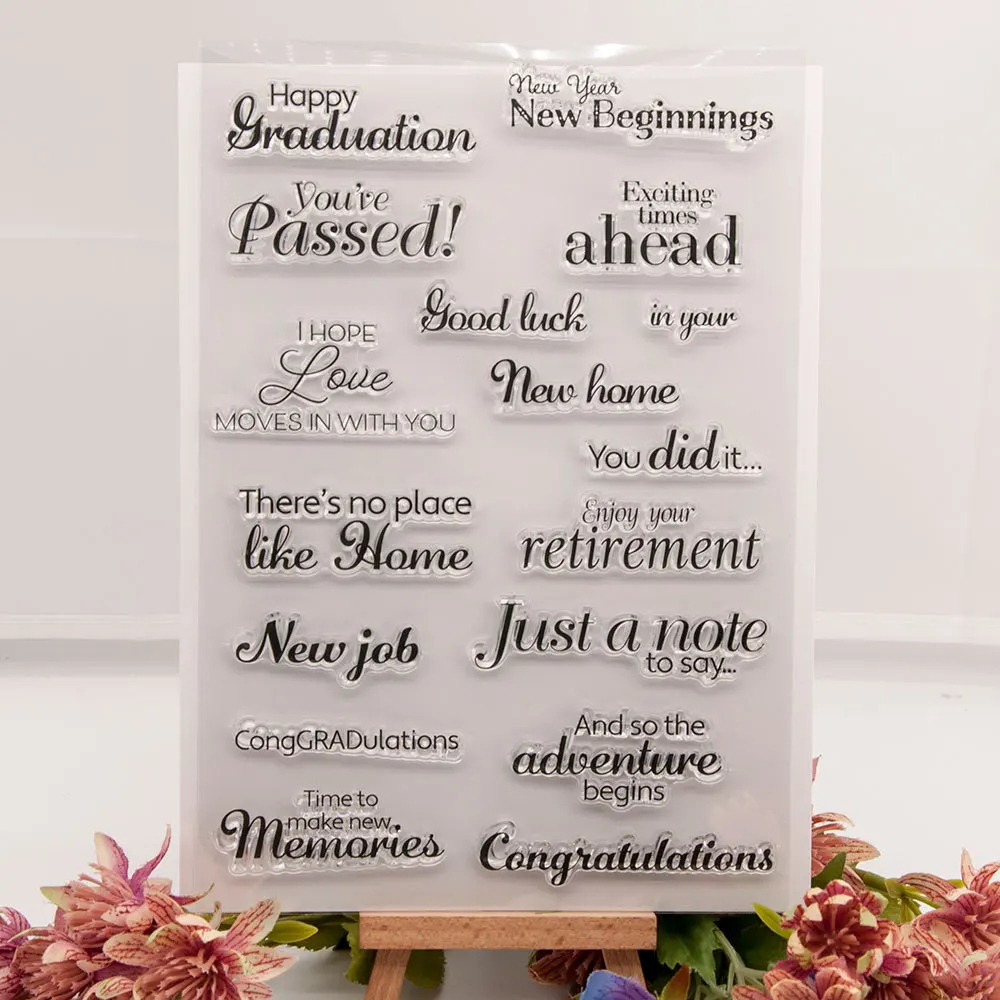 Happy
Graduation
New Year
New Beginnings
You've
Passed!
Exciting
times
ahead
Good luck
in your
I HOPE
Love
MOVES IN WITH YOU
New home
You did it...
There's no place
like Home
Enjoy your
retirement
New job
Just a note
to say...
CongGRADulations
And so the
adventure
begins
Time to
make new
Memories
Congratulations